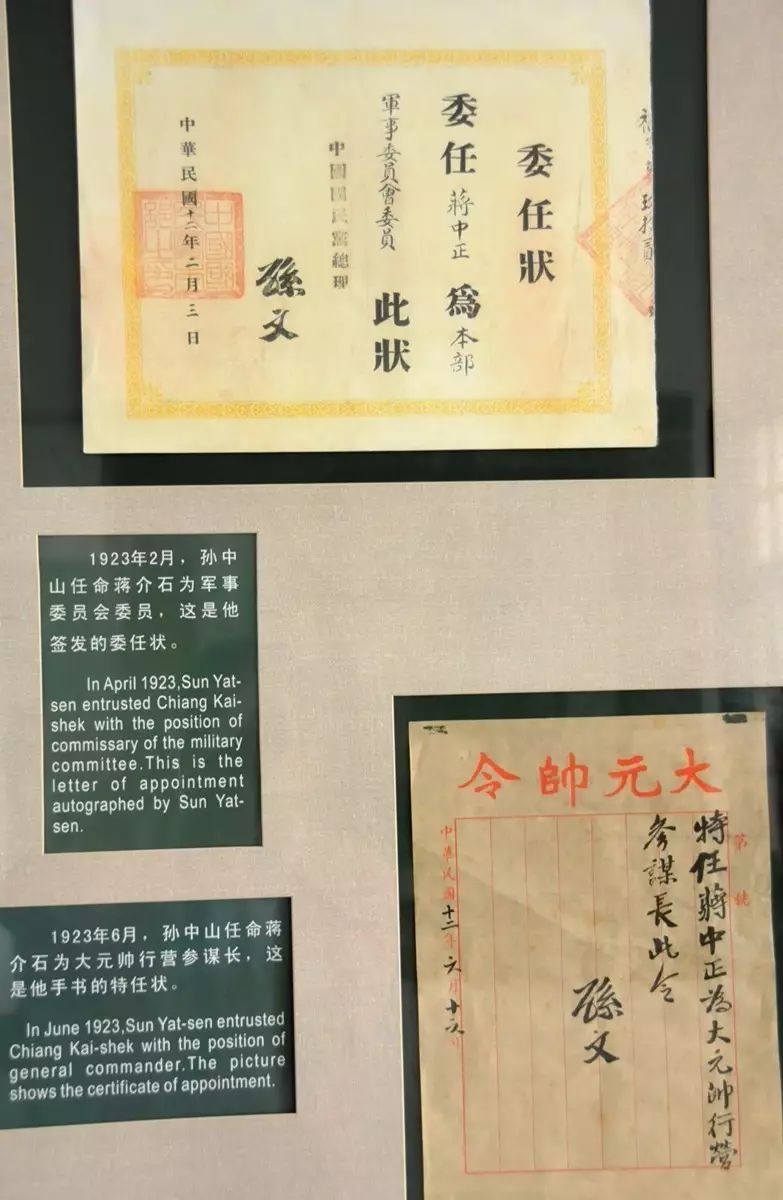 委任狀
委任蔣中正為本部
軍事委員會委員 此狀
中國國民黨總理
孫文
中華民國十二年二月三日
1923年2月，孙中
山任命蒋介石为军事
委员会委员，这是他
签发的委任状。
In April 1923,Sun Yat-
sen entrusted Chiang Kai-
shek with the position of
commissary of the military
committee.This is the
letter of appointment
autographed by Sun Yat-
sen.
大元帥令
第 號
特任蔣中正為大元帥行營
參謀長此令
孫文
中華民國十二年六月十六日
1923年6月，孙中山任命蒋
介石为大元帅行营参谋长，这
是他手书的特任状。
In June 1923,Sun Yat-sen entrusted
Chiang Kai-shek with the position of
general commander.The picture
shows the certificate of appointment.